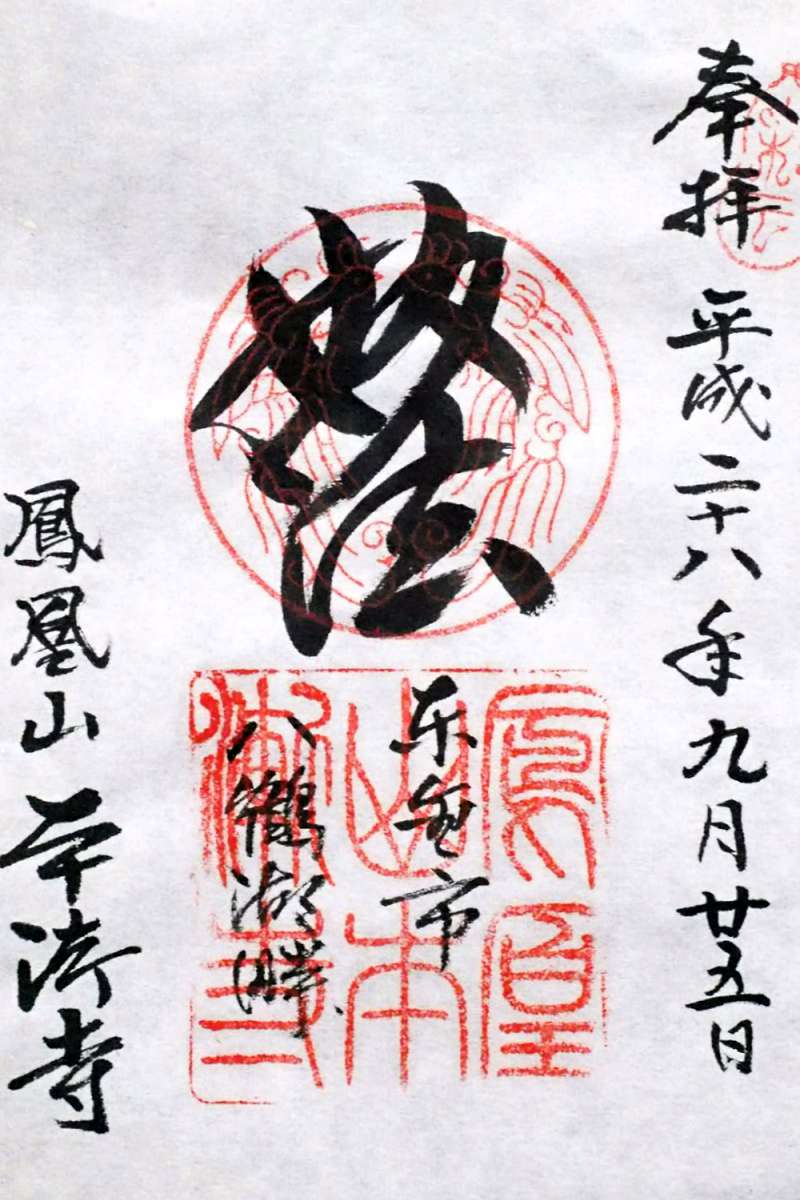 奉拝 平成二十八年九月廿五日
妙法
東金市
八鶴湖畔
鳳凰山 本漸寺
鳳凰
山本
漸寺